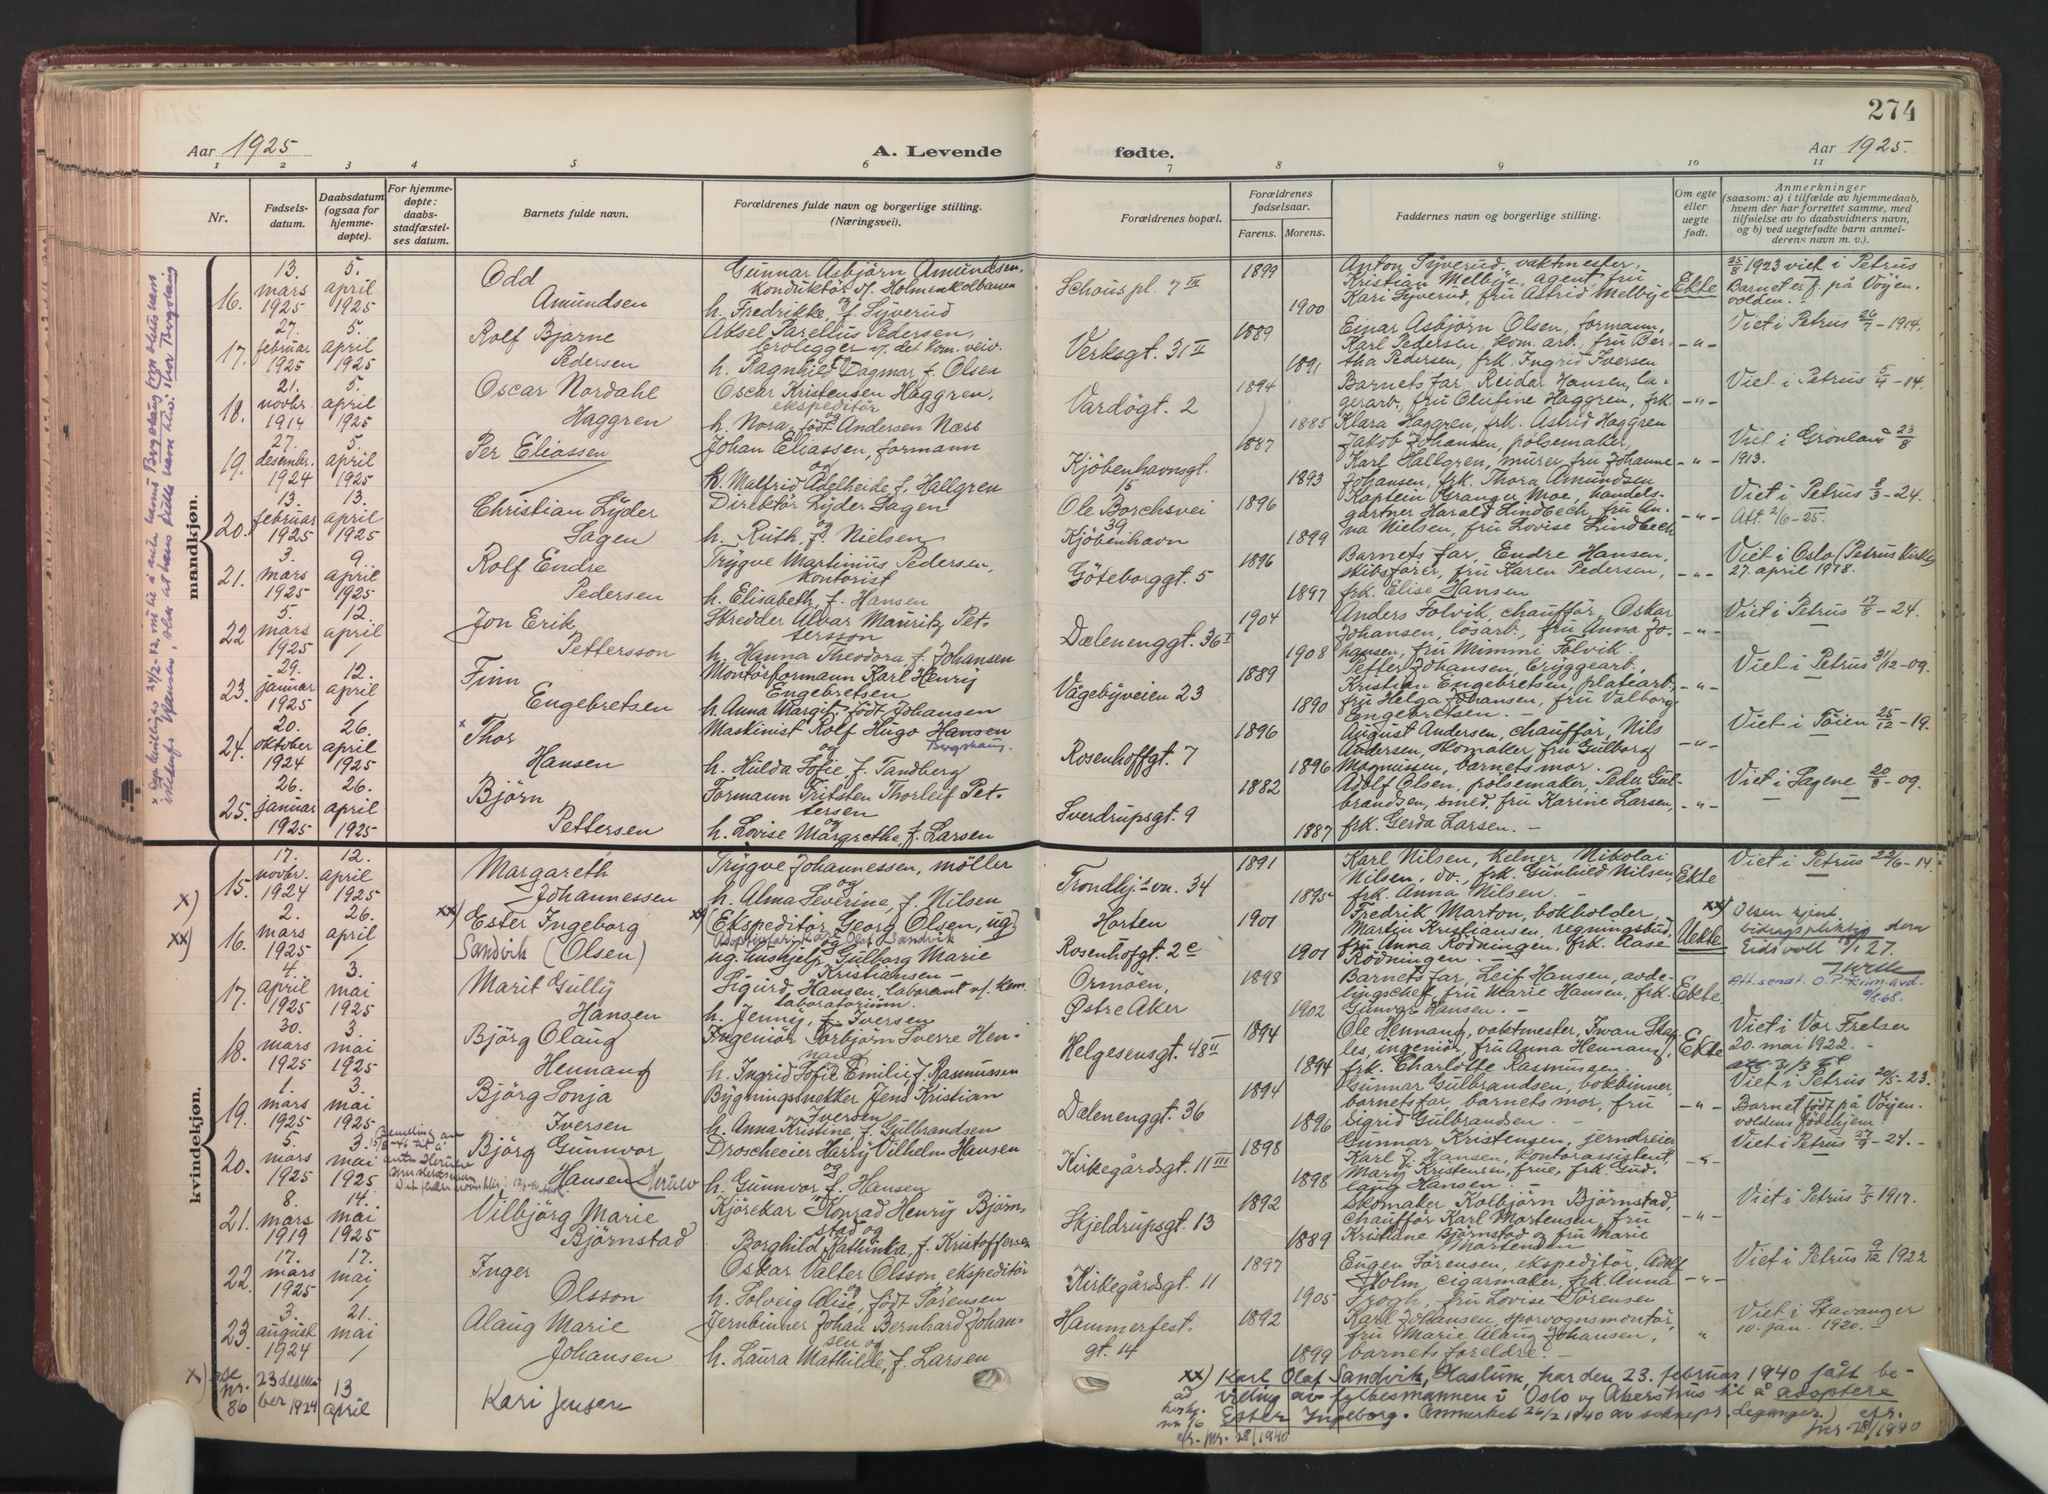 274
Aar 1925
A. Levende
fødte.
Aar 1925.
1 2 3 4 5 6 7 8 9 10 11
Nr.
Fødselsdatum.
Daabsdatum (ogsaa for hjemmedøpte).
For hjemmedøpte: daabsstadfæstelses datum.
Barnets fulde navn.
Forældrenes fulde navn og borgerlige stilling. (Næringsvei).
Forældrenes bopæl.
Forældrenes fødselsaar.
Farens. Morens.
Faddernes navn og borgerlige stilling.
Om egte eller uegte født.
Anmerkninger
(saasom: a) i tilfælde av hjemmedaab,
hvem der har forrettet samme, med
tilføielse av to daabsvidners navn,
og b) ved uegtefødte barn anmelderens navn m. v.).
mandkjøn.
16. 13. mars 1925
5. april 1925
Odd
Amundsen
Gunnar Asbjörn Amundsen,
konduktör v/ Holmenkolbanen
og
h. Fredrikke, f. Syverud
Schous pl. 7 III
1899
1900
Anton Syverud, vaktmester,
Kristian Melbye, agent, fru
Kari Syverud, fru Astrid Melbye
Ekte
25/8 1923 viet i Petrus
Barnet er f. på Vöyen-
volden.
17. 27. februar 1925
5. april 1925
Rolf Bjarne
Pedersen
Aksel Parelius Pedersen,
brolegger v/ det kom. veiv.
og
h. Ragnhild Dagmar f. Olsen
Verksgt. 31 II
1889
1891
Einar Asbjörn Olsen, formann,
Karl Pedersen, kom. arb., fru Ber-
tha Pedersen, frk. Ingrid Iversen
-"-
Viet i Petrus 26/7 - 1914.
18. 21. novbr. 1914
5. april 1925
Oscar Nordahl
Haggren
Oscar Kristensen Haggren,
ekspeditör
og
h. Nora, född Andersen Næss
Vardögt. 2
1894
1885
Barnets far, Reidar Hansen, la-
gerarb., fru Olufine Haggren, frk.
Klara Haggren, frk. Astrid Haggren
-"-
Viet i Petrus 5/4 - 14.
19. 27. desember 1924
5. april 1925
Per Eliassen
Johan Eliassen, formann
og
h. Malfrid Adelheide f. Hallgren
Kjöbenhavnsgt. 15
1887
1893
Jakob Johansen, pölsemaker,
Karl Hallgren, murer, fru Johanne
Johansen, frk. Thora Amundsen
-"-
Viet i Grönland 23/8
1913.
20. 13. februar 1925
13. april 1925
Christian Lyder
Sagen
Direktör Lyder Sagen
og
h. Ruth, f. Nielsen
Ole Borchsvei 39
Kjöbenhavn
1896
1899
Kaptein Granger Moe, handels-
gartner Harald Lindbech, fru An-
na Nielsen, fru Lovise Lindbech
-"-
Viet i Petrus 8/3 - 24.
Att. 2/6 - 25.
21. 3. mars 1925
9. april 1925
Rolf Endre
Pedersen
Trygve Martinius Pedersen,
kontorist
h. Elisabeth, f. Hansen
Göteborggt. 5
1896
1897
Barnets far, Endre Hansen,
skibsförer, fru Karen Pedersen,
frk. Elise Hansen
-"-
Viet i Oslo (Petrus kirke)
27. april 1918.
22 5. mars 1925
12. april /
Jon Erik
Pettersson
Skredder Alvar Mauritz Pet-
tersson
h. Hanna Theodora, f. Johansen
Dælenenggt. 36 I
1904
1908
Anders Folvik, chaufför, Oskar
Johansen, lösarb., fru Anna Jo-
hansen, fru Mimmi Folvik.
-"-
Viet i Petrus 17/8 - 24.
23. 29. januar 1925
12. april /
Finn
Engebretsen
Montörformann Karl Henry
Engebretsen
h. Anna Margit, född Johansen
Vågebyveien 23
1889
1890
Petter Johansen, bryggearb.,
Kristian Engebretsen, platearb.,
fru Helga Johansen, fru Valborg
Engebretsen. -
-"-
Viet i Petrus 31/12 - 09.
24. 20. oktober 1924
26. april 1925
x Thor
Hansen
Maskinist Rolf Hugo Hansen
Bergshaug.
og
h. Hulda Sofie, f. Tandberg
Rosenhoffgt. 7
1896
1896
August Andersen, chaufför, Nils
Andersen, skomaker, fru Gulborg
Magnussen, barnets mor. -
-"-
Viet i Töien 25/12 - 19.
25. 26. januar 1925
26. april 1925
Björn
Pettersen
Formann Fritsten Thorleif Pet-
tersen
og
h. Lovise Margrethe, f. Larsen
Sverdrupsgt. 9
1882
1887
Adolf Olsen, pölsemaker, Peder Gul-
brandsen, smed, fru Karine Larsen,
frk. Gerda Larsen. -
-"-
Viet i Sagene 20/8 - 09.
kvindekjøn.
x)
15. 17. novbr. 1924
12. april 1925
Margareth
Johannessen
Trygve Johannessen, möller
og
h. Alma Severine, f. Nilsen
Trondhj.svn. 34
1891
1895
Karl Nilsen, kelner, Nikolai
Nilsen, do., frk. Gunhild Nilsen
frk. Anna Nilsen. -
Ekte
Viet i Petrus 22/6 - 14.
xx)
16. 2. mars 1925
26. april /
xx) Ester Ingeborg
Sandvik (Olsen)
xx) (Ekspeditör Georg Olsen, ug)
Karl Olaf Sandvik
og
ug. hushjelp Gulborg Marie
Kristiansen -
Horten
Rosenhofgt. 2 c
1901
1901
Fredrik Marton, bokholder,
Martin Kristiansen, regningsbud,
fru Anna Rödningen, frk. Aase
Rödningen. -
Uekte
xx) Olsen kjent
bidragspliktig
Eidsvoll 27.
17. 4. april 1925
3. mai 1925
Marit Gully
Hansen
Sigurd Hansen, laborant v/ kem.
laboratorium.
h. Jenny, f. Iversen
Ormöen,
Östre Aker
1898
1902
Barnets far, Leif Hansen, avde-
lingschef, fru Marie Hansen, frk.
Gunvor Hansen. -
Ekte
Att. sendt O. P. krim. avd.
18. 30. mars 1925
3. mai 1925
Björg Olaug
Hennang
Ingeniör Torbjörn Sverre Hen-
nang
h. Ingrid Sofie Emilie, f. Rasmussen
Helgesensgt. 48 II
1894
1894
Ole Hennang, vaktmester, Iwan
ingeniör, fru Anna Hennang,
frk. Charlotte Rasmussen.
Ekte
Viet i Vor Frelser
20. mai 1922. -
19. 1. mars 1925
3. mai 1925
Björg Sonja
Iversen
Bygningssnekker Jens Kristian
Iversen
og
h. Anna Kristine, f. Gulbrandsen
Dælenenggt. 36
1894
1896
Gunnar Gulbrandsen, bokbinner,
barnets far, barnets mor, fru
Sigrid Gulbrandsen. -
-"-
Viet i Petrus 20/5 - 23.
Barnet född på Vöyen-
voldens födehjem.
20. 5. mars 1925
3. mai 1925
Björg Gunnvor
Hansen
Droscheeier Harry Vilhelm Hansen
og
h. Gunnvor f. Hansen
Kirkegårdsgt. 11 III
1898
1898
Gunnar Kristensen, jerndreier
Karl J. Hansen, kontorassistent,
Mary Kristensen, frue, frk. Gud-
laug Hansen. -
-"-
Viet i Petrus 27/9 - 24. -
21. 8. mars 1919
14. mai 1925
Vilbjörg Marie
Björnstad
Kjörekar Konrad Henry Björn-
stad og
Borghild Kathinka, f. Kristoffersen
Skjeldrupsgt. 13
1892
1889
Skomaker Kolbjörn Björnstad,
chaufför Karl Mortensen, fru
Kristiane Björnstad og fru Marie
Mortensen
-"-
Viet i Petrus 7/5 1917.
22. 17. mars 1925
17. mai /
Inger
Olsson
Oskar Valter Olsson, ekspeditör
og
h. Solveig Alise, född Sörensen
Kirkegårdsgt. 11
1897
1905
Eugen Sörensen, ekspeditör, Adolf
Holm, cigarmaker, frk. Anna
Trogh, fru Lovise Sörensen
-"-
Viet i Petrus 9/12 1922
23 3. august 1924
21. mai /
Alaug Marie
Johansen
Jernbinner Johan Bernhard Johan-
sen og
h. Laura Mathilde, f. Larsen
Hammerfest-
gt. 14
1892
1899
Karl Johansen, sporvognsmontör,
fru Marie Alaug Johansen,
barnets foreldre. -
"
Viet i Stavanger
10. jan. 1920. -
x) se nr. 86
23 desember 1924
13 april
Kari Jensen
xx) Karl Olaf Sandvik, Haslum, har den 23. februar 1940 fått be-
villing av fylkesmannen i Oslo og Akershus til å adoptere
Ester Ingeborg. Anmerket 26/2 1940 av soknepr. cfr.
jnr. 28/1940
nr 16
cfr. jnr. 28/1940